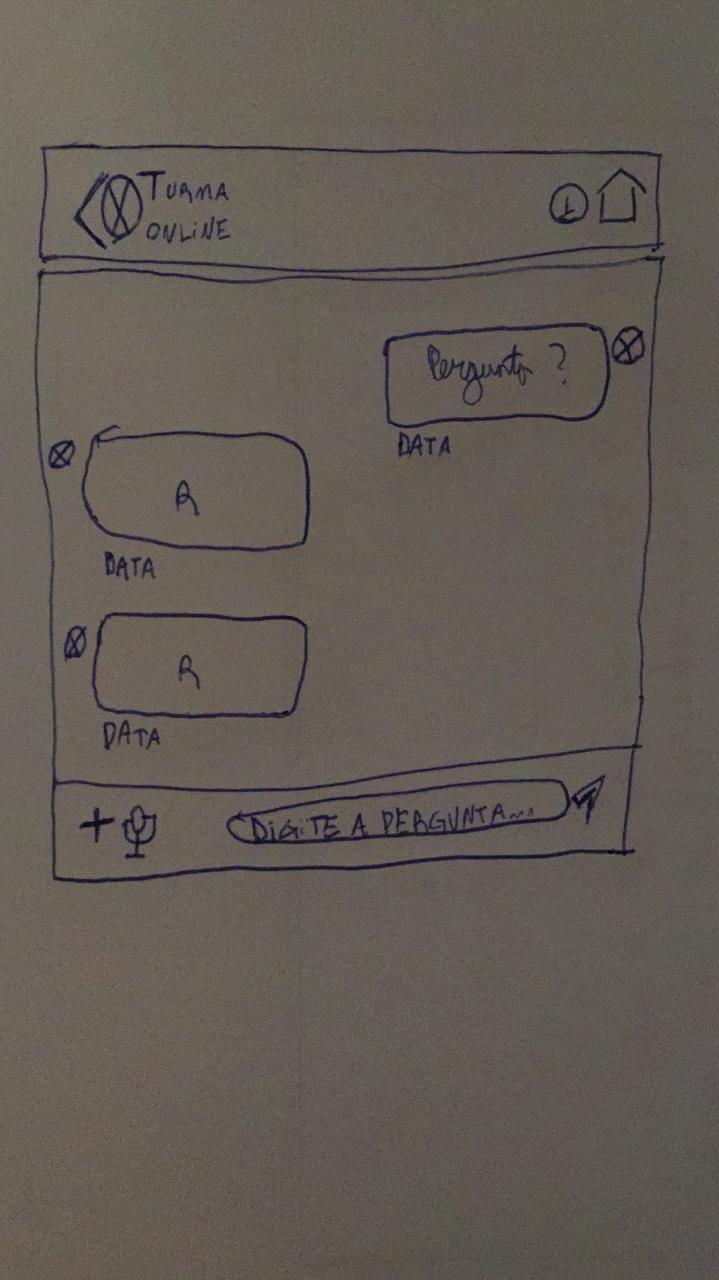 TURMA
ONLINE
i
Pergunta ?
DATA
R
DATA
R
DATA
DIGITE A PERGUNTA...